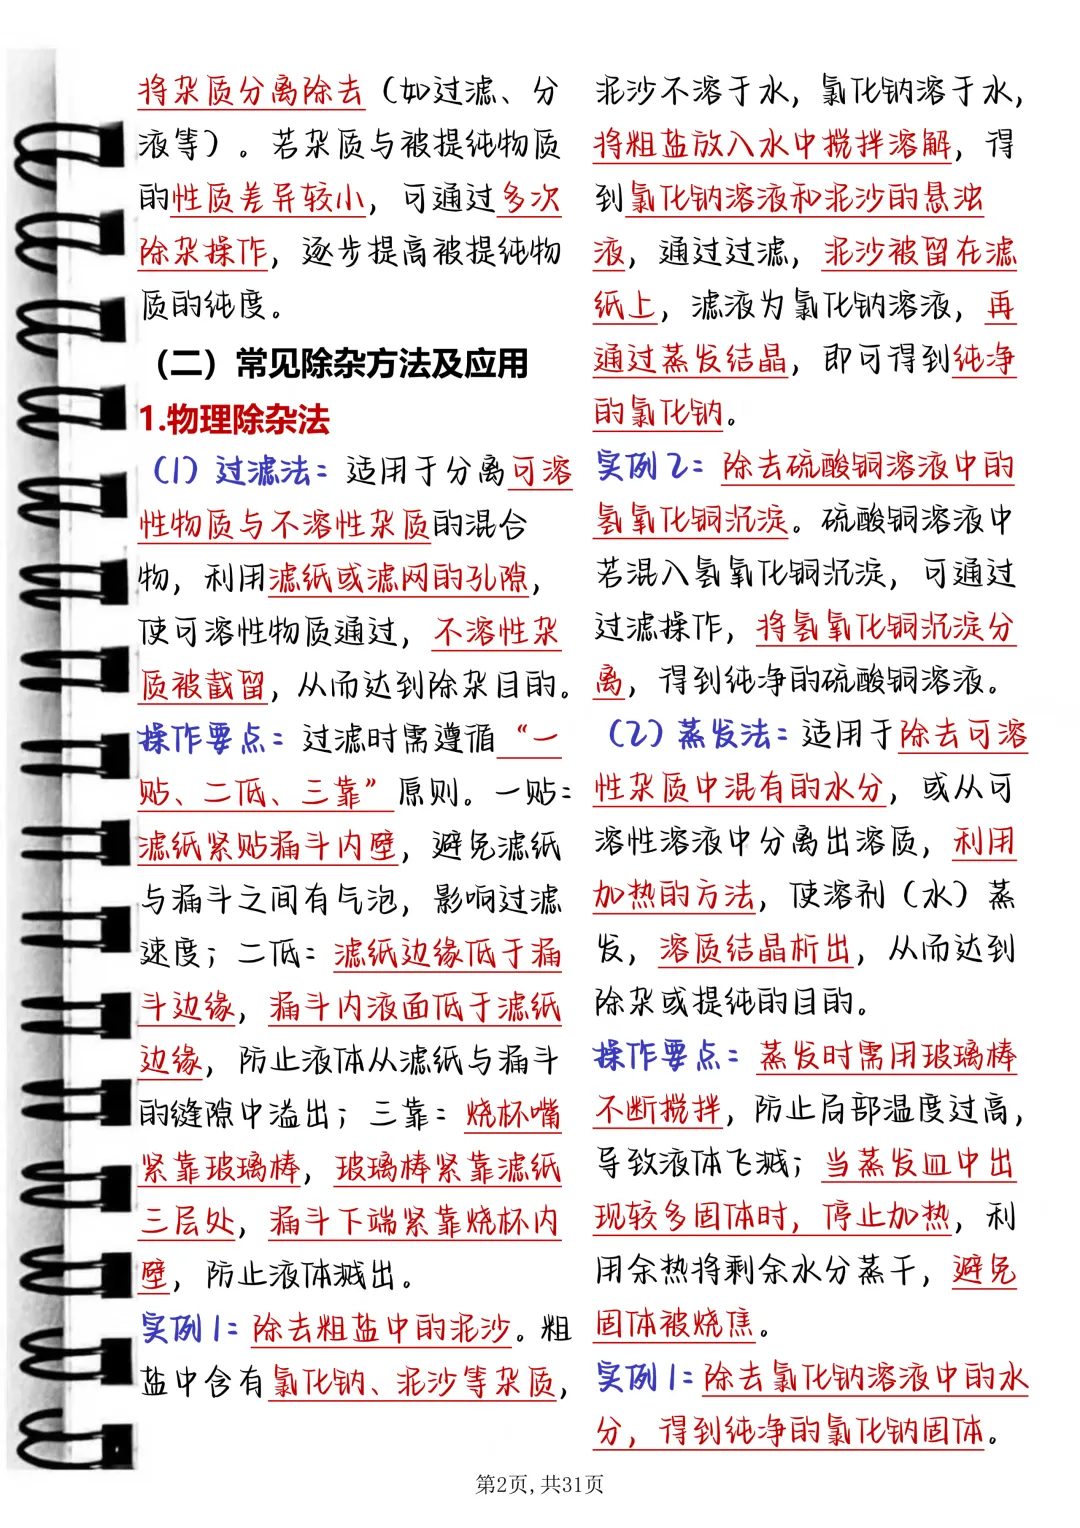 将杂质分离除去（如过滤、分
液等）。若杂质与被提纯物质
的性质差异较小，可通过多次
除杂操作，逐步提高被提纯物
质的纯度。
（二）常见除杂方法及应用
1.物理除杂法
（1）过滤法：适用于分离可溶
性物质与不溶性杂质的混合
物，利用滤纸或滤网的孔隙，
使可溶性物质通过，不溶性杂
质被截留，从而达到除杂目的。
操作要点：过滤时需遵循“一
贴、二低、三靠”原则。一贴：
滤纸紧贴漏斗内壁，避免滤纸
与漏斗之间有气泡，影响过滤
速度；二低：滤纸边缘低于漏
斗边缘，漏斗内液面低于滤纸
边缘，防止液体从滤纸与漏斗
的缝隙中溢出；三靠：烧杯嘴
紧靠玻璃棒，玻璃棒紧靠滤纸
三层处，漏斗下端紧靠烧杯内
壁，防止液体溅出。
实例1：除去粗盐中的泥沙。粗
盐中含有氯化钠、泥沙等杂质，
泥沙不溶于水，氯化钠溶于水，
将粗盐放入水中搅拌溶解，得
到氯化钠溶液和泥沙的悬浊
液，通过过滤，泥沙被留在滤
纸上，滤液为氯化钠溶液，再
通过蒸发结晶，即可得到纯净
的氯化钠。
实例2：除去硫酸铜溶液中的
氢氧化铜沉淀。硫酸铜溶液中
若混入氢氧化铜沉淀，可通过
过滤操作，将氢氧化铜沉淀分
离，得到纯净的硫酸铜溶液。
（2）蒸发法：适用于除去可溶
性杂质中混有的水分，或从可
溶性溶液中分离出溶质，利用
加热的方法，使溶剂（水）蒸
发，溶质结晶析出，从而达到
除杂或提纯的目的。
操作要点：蒸发时需用玻璃棒
不断搅拌，防止局部温度过高，
导致液体飞溅；当蒸发皿中出
现较多固体时，停止加热，利
用余热将剩余水分蒸干，避免
固体被烧焦。
实例1：除去氯化钠溶液中的水
分，得到纯净的氯化钠固体。
第2页,共31页